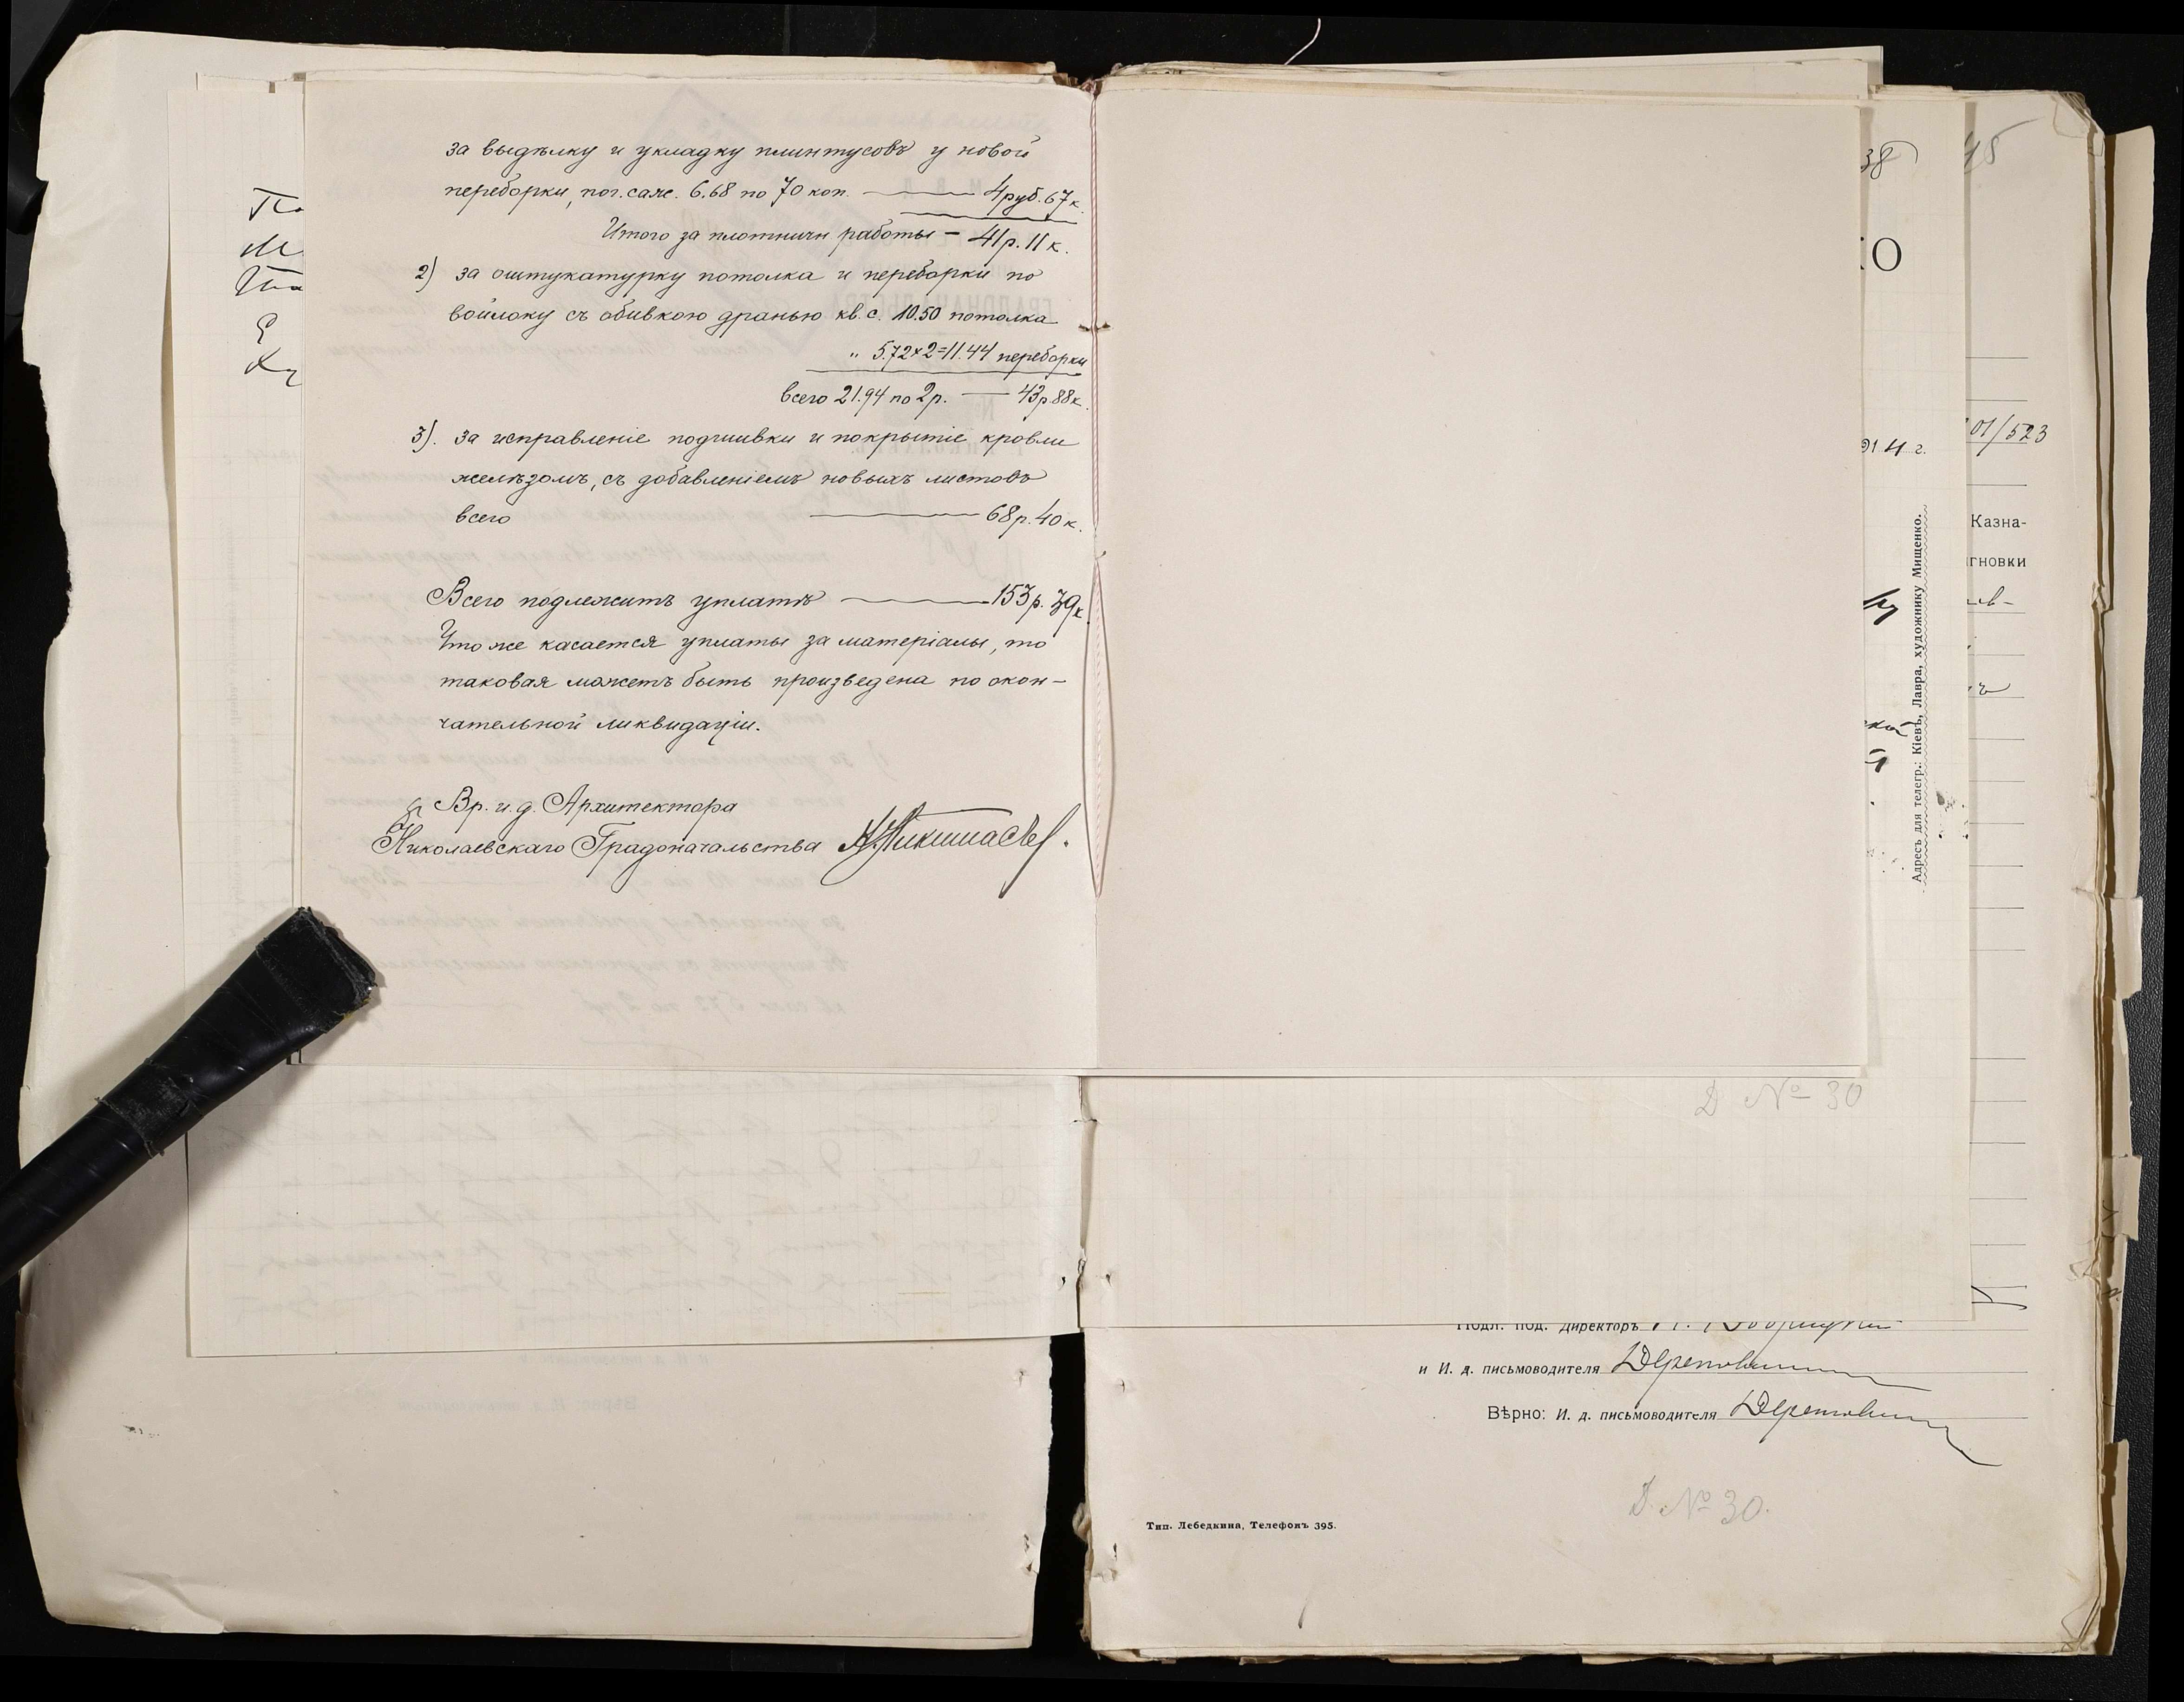 за выдѣлку и укладку плинтусовъ у новой
переборки, пог. саж. 6,68 по 70 коп. — 4 руб. 67 к.
Итого за плотничн работы — 41 р. 11 к.
2) за оштукатурку потолка и переборки по
войлоку съ обивкою дранью кв. с. 10.50 потолка
" 5.72×2=11.44 переборки
всего 21.94 по 2 р. — 43 р. 88 к.
3). за исправленіе подшивки и покрытіе кровли
желѣзомъ, съ добавленіемъ новыхъ листовъ
всего — 68 р. 40 к.
Всего подлежитъ уплатѣ — 153 р. 39 к.
Что же касается уплаты за матеріалы, то
таковая можетъ быть произведена по окон-
чательной ликвидаціи.
Вр. и. д. Архитектора
Николаевскаго Градоначальства
38
45
КО
914 г.
01/523
Казна-
гновки
Адресъ для телегр.: Кіевъ, Лавра, художнику Мищенко.
Д №30
Подл. под. Директоръ
и И. д. письмоводителя
Вѣрно: И. д. письмоводителя
Д. №30.
Тип. Лебедкина, Телефонъ 395.